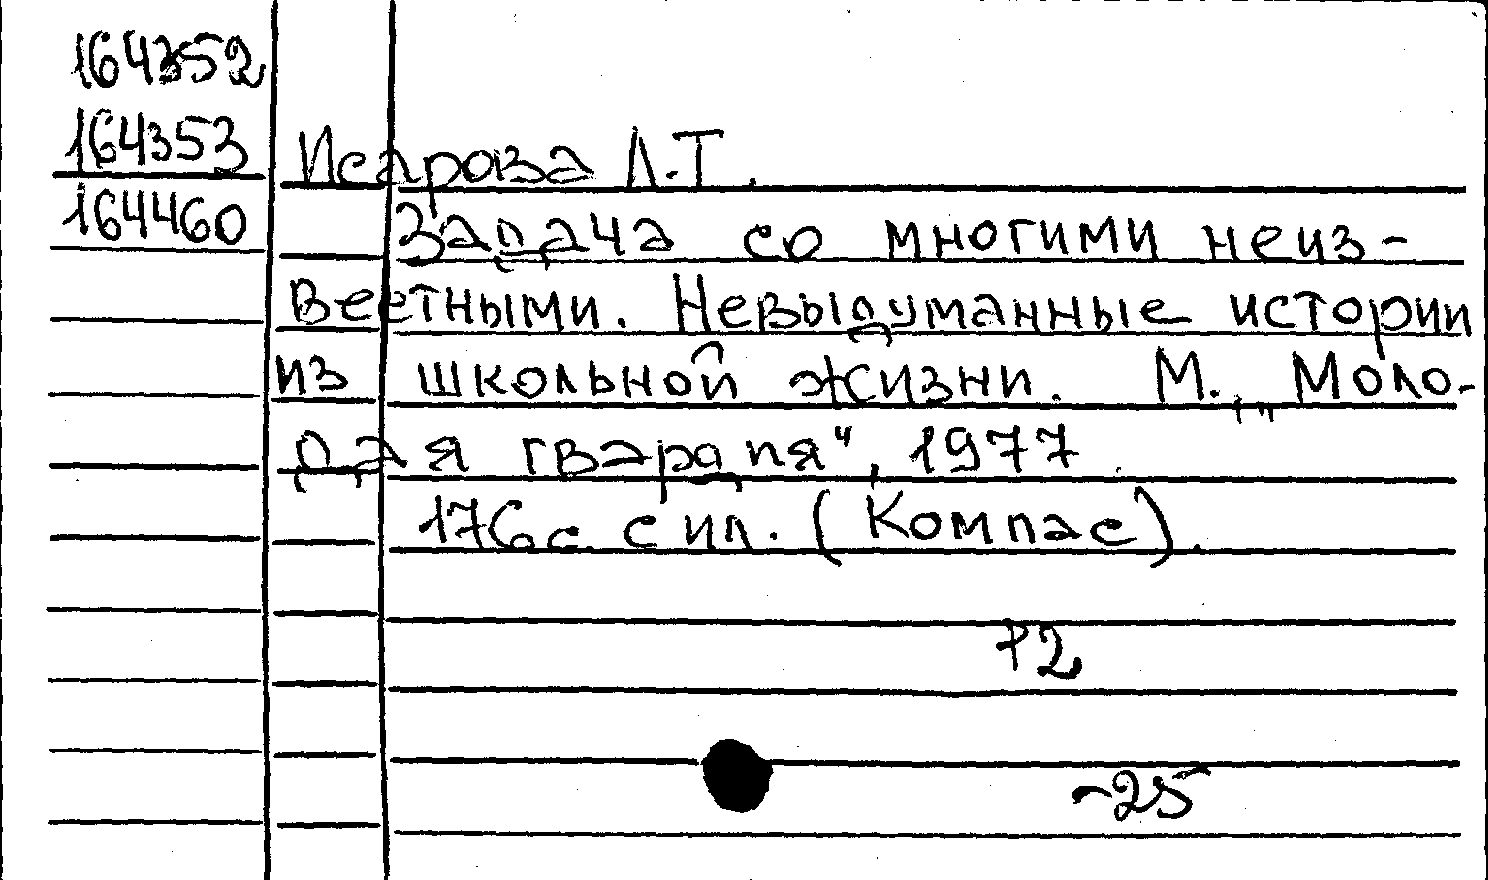 164352
164353
164460
Исарова Л.Т.
Задача со многими неиз-
вестными. Невыдуманные истории
из школьной жизни. М., „Моло-
дая гвардия", 1977
176с. с ил. (Компас).
Р2
-25